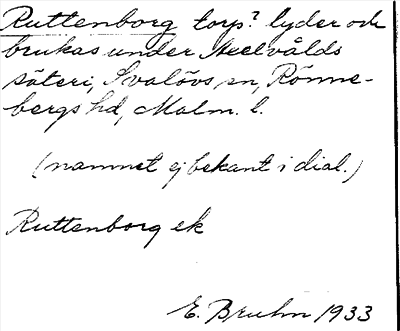 Ruttenborg torp? lyder och
brukas under Axelvålds
säteri, Svalövs sn, Rönne-
bergs hd, Malm. l.
(namnet ej bekant i dial.)
Ruttenborg ek
E. Bruhn 1933